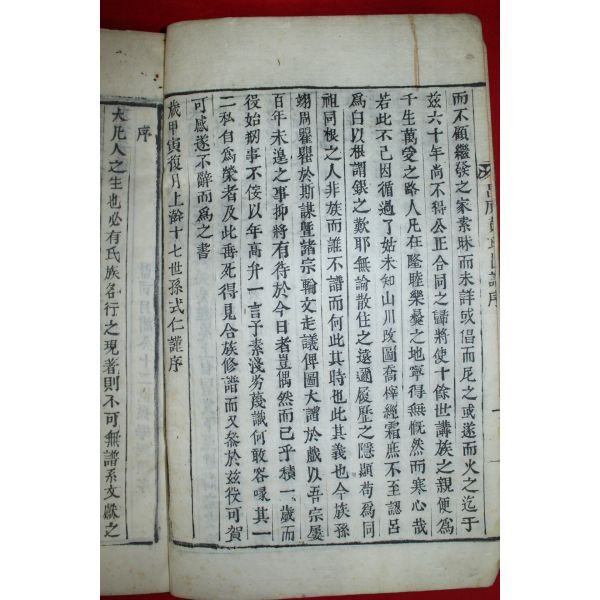 而不顧繼發之家素昧而未詳或倡而尼之或遂而火之迄于
玆六十年尙不得公正合同之歸將使十餘世講族之親便爲
千生萬受之路人凡在隆睦樂彝之地寧得無慨然而寒心哉
若此不已因循過了姑未知山川改圖喬梓經霜庶不至認呂
爲白以根謂銀之歎耶無論散住之遠邇履歷之隱顯苟爲同
祖同根之人非族而誰不譜而何此其時也此其義也今族孫
翊周瞿瞿於斯謀曁諸宗輪文走議俾圖大譜於戲以吾宗屢
百年未遑之事抑將有待於今日者豈偶然而已乎積一歲而
役始剏事不佞以年高升一言予素淺劣蔑識何敢容喙其一
二私自爲榮者及此耑死得見合族修譜而又叅於玆役可賀
可感遂不辭而爲之書
歲甲寅復月上澣十七世孫式仁謹序
序
大凡人之生也必有氏族各行之現著則不可無譜系文献之